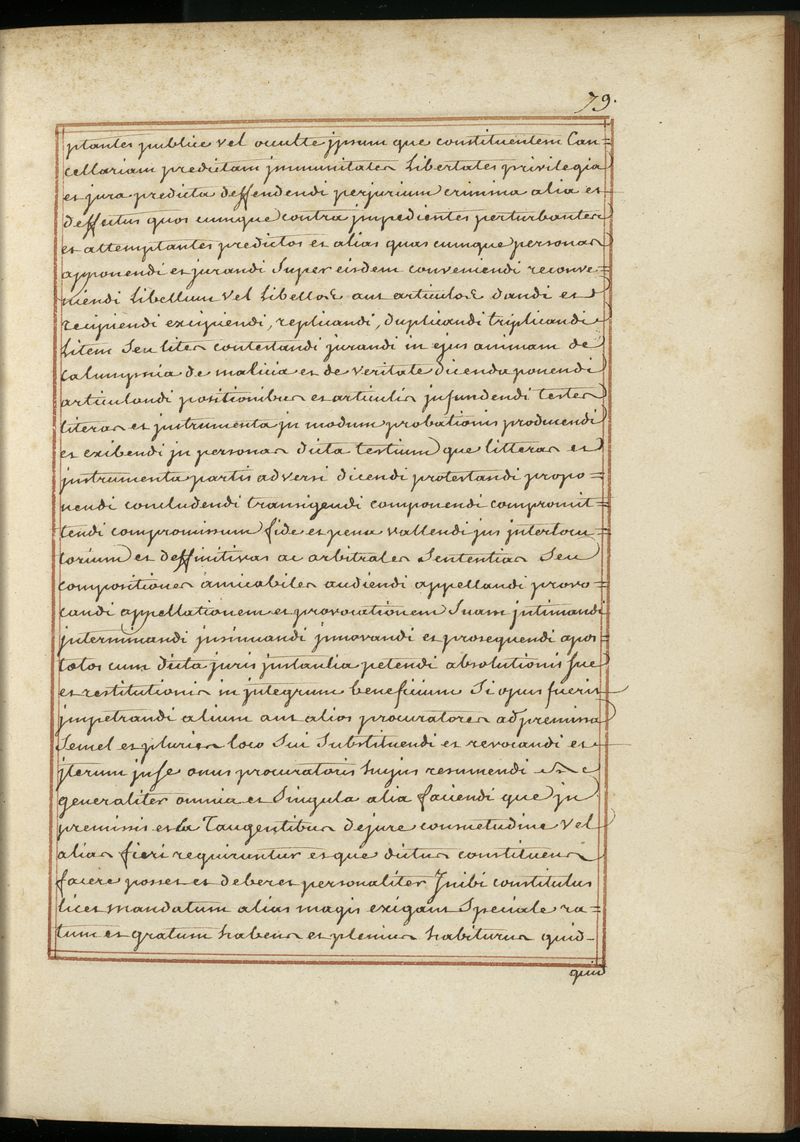 79.
ptantes publice vel occulte jpsum que constituentem Can=
cellariam predictam jmmunitates Libertates privilegia
et jura predicta deffendendi perjurium crimina alia et
deffectus quos cumque contra jmpedientes perturbantes
et attemptantes predictos et alias quas cumque personas
apponendi et jurandi Super eisdem conveniendi reconve=
niendi Libellum vel Libellos aut articulos dandi et
recipiendi excipiendi, replicandi, duplicandi triplicandi
Litem Seu lites contestandi jurandi in ejus animam de
Calumpnia de malicia et de veritate dicenda ponendi
articulandi positionibus et articulis testes
literas et jnstrumenta jn modum probationis producendi
et exibendi jn personas dicta testium que litteras et
jnstrumenta partis adversi dicendi protestandi propo=
nendi concludendi transigendi componendi compromit=
tendi compromissum fide et pena vallendi jus jnterlocu=
torium et deffinitivas ac arbitrales Sententias Seu
compositiones amicabiles audiendi appellandi provo=
candi appellationem et provocationem Suam jntimandi
jnterminandi jnsinuandi jnnovandi et prosequendi apos
tolos cum dicta juris petendi absolutionis sue
et restitutionis in jntegrum beneficium Si opus fuerit
jmpetrandi alium aut alios procuratores ad premissa
Semel et pluries loco Sui Substituendi et revocandi et
jterum jnse onus procuratoris hujus resumendi
generaliter omnia et Singula alia faciendi que jn
premissis et La Tangentibus dejure consuetudine vel
alias fieri requiruntur et que dictus constituens
facere posset et deberet personaliter Jnibi constitutus
licet mandatum alias magis exigant Speciale ra=
tum et gratum habens et plenius habiturus quid-
quid